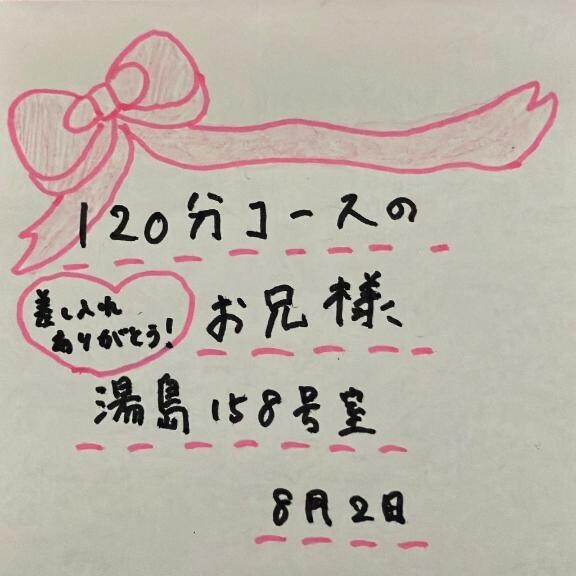 120分コースの
差し入れ
ありがとう!
お兄様
湯島158号室
8月2日